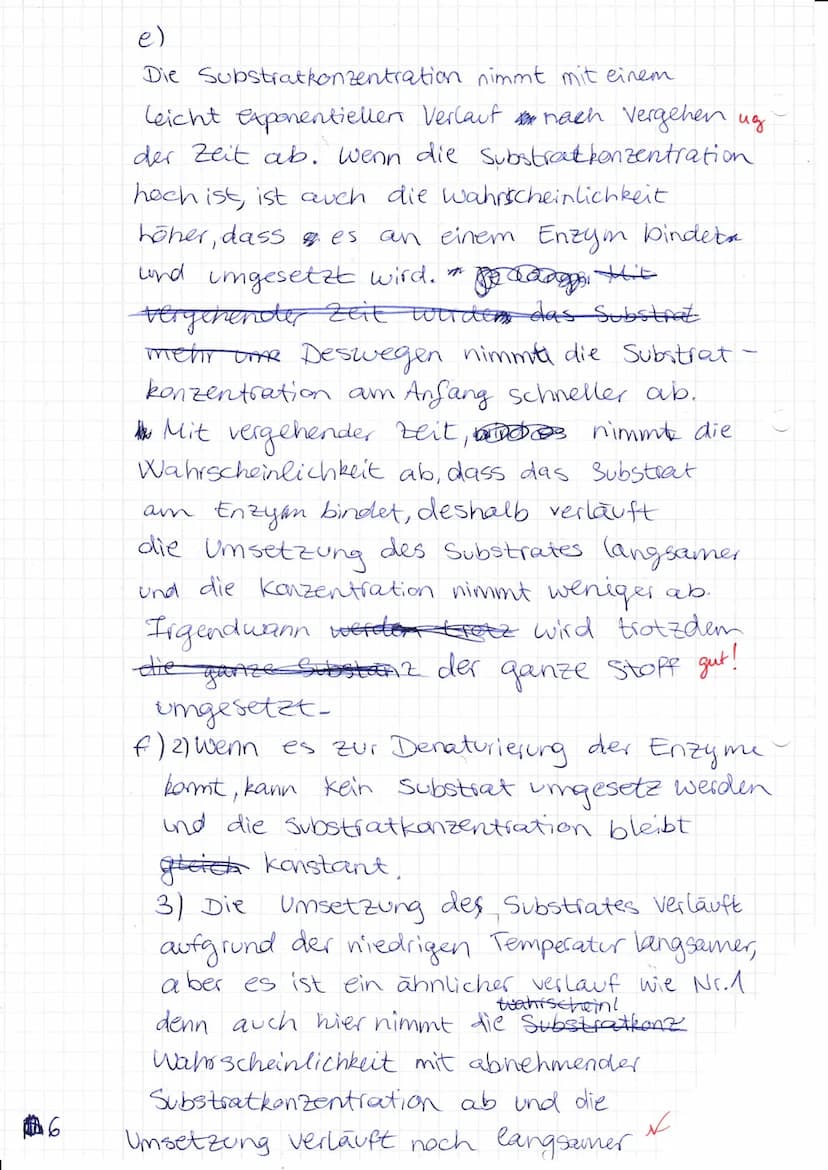 e)
Die Substratkonzentration nimmt mit einem
leicht exponentiellen Verlauf nach Vergehen ug
der Zeit ab. Wenn die Substratkonzentration
hoch ist, ist auch die Wahrscheinlichkeit
höher, dass es an einem Enzym bindet
und umgesetzt wird. Mit
vergehender Zeit wurde das Substrat
mehr ume Deswegen nimmt die Substrat-
konzentration am Anfang schneller ab.
Mit vergehender Zeit, nimmt die
Wahrscheinlichkeit ab, dass das Substrat
am Enzym bindet, deshalb verläuft
die Umsetzung des Substrates langsamer
und die Konzentration nimmt weniger ab.
Irgendwann werden trotz wird trotzdem
die ganze Substanz der ganze Stoff gut!
umgesetzt.
f) 2) Wenn es zur Denaturierung der Enzyme
komt, kann kein Substrat umgesetz werden
und die Substratkonzentration bleibt
gleich konstant.
3) Die Umsetzung des Substrates verläuft
aufgrund der niedrigen Temperatur langsamer,
aber es ist ein ähnlicher verlauf wie Nr. 1
wahrscheinl
denn auch hier nimmt die Substratkonz
Wahrscheinlichkeit mit abnehmender
Substratkonzentration ab und die
6 Umsetzung verläuft noch langsamer